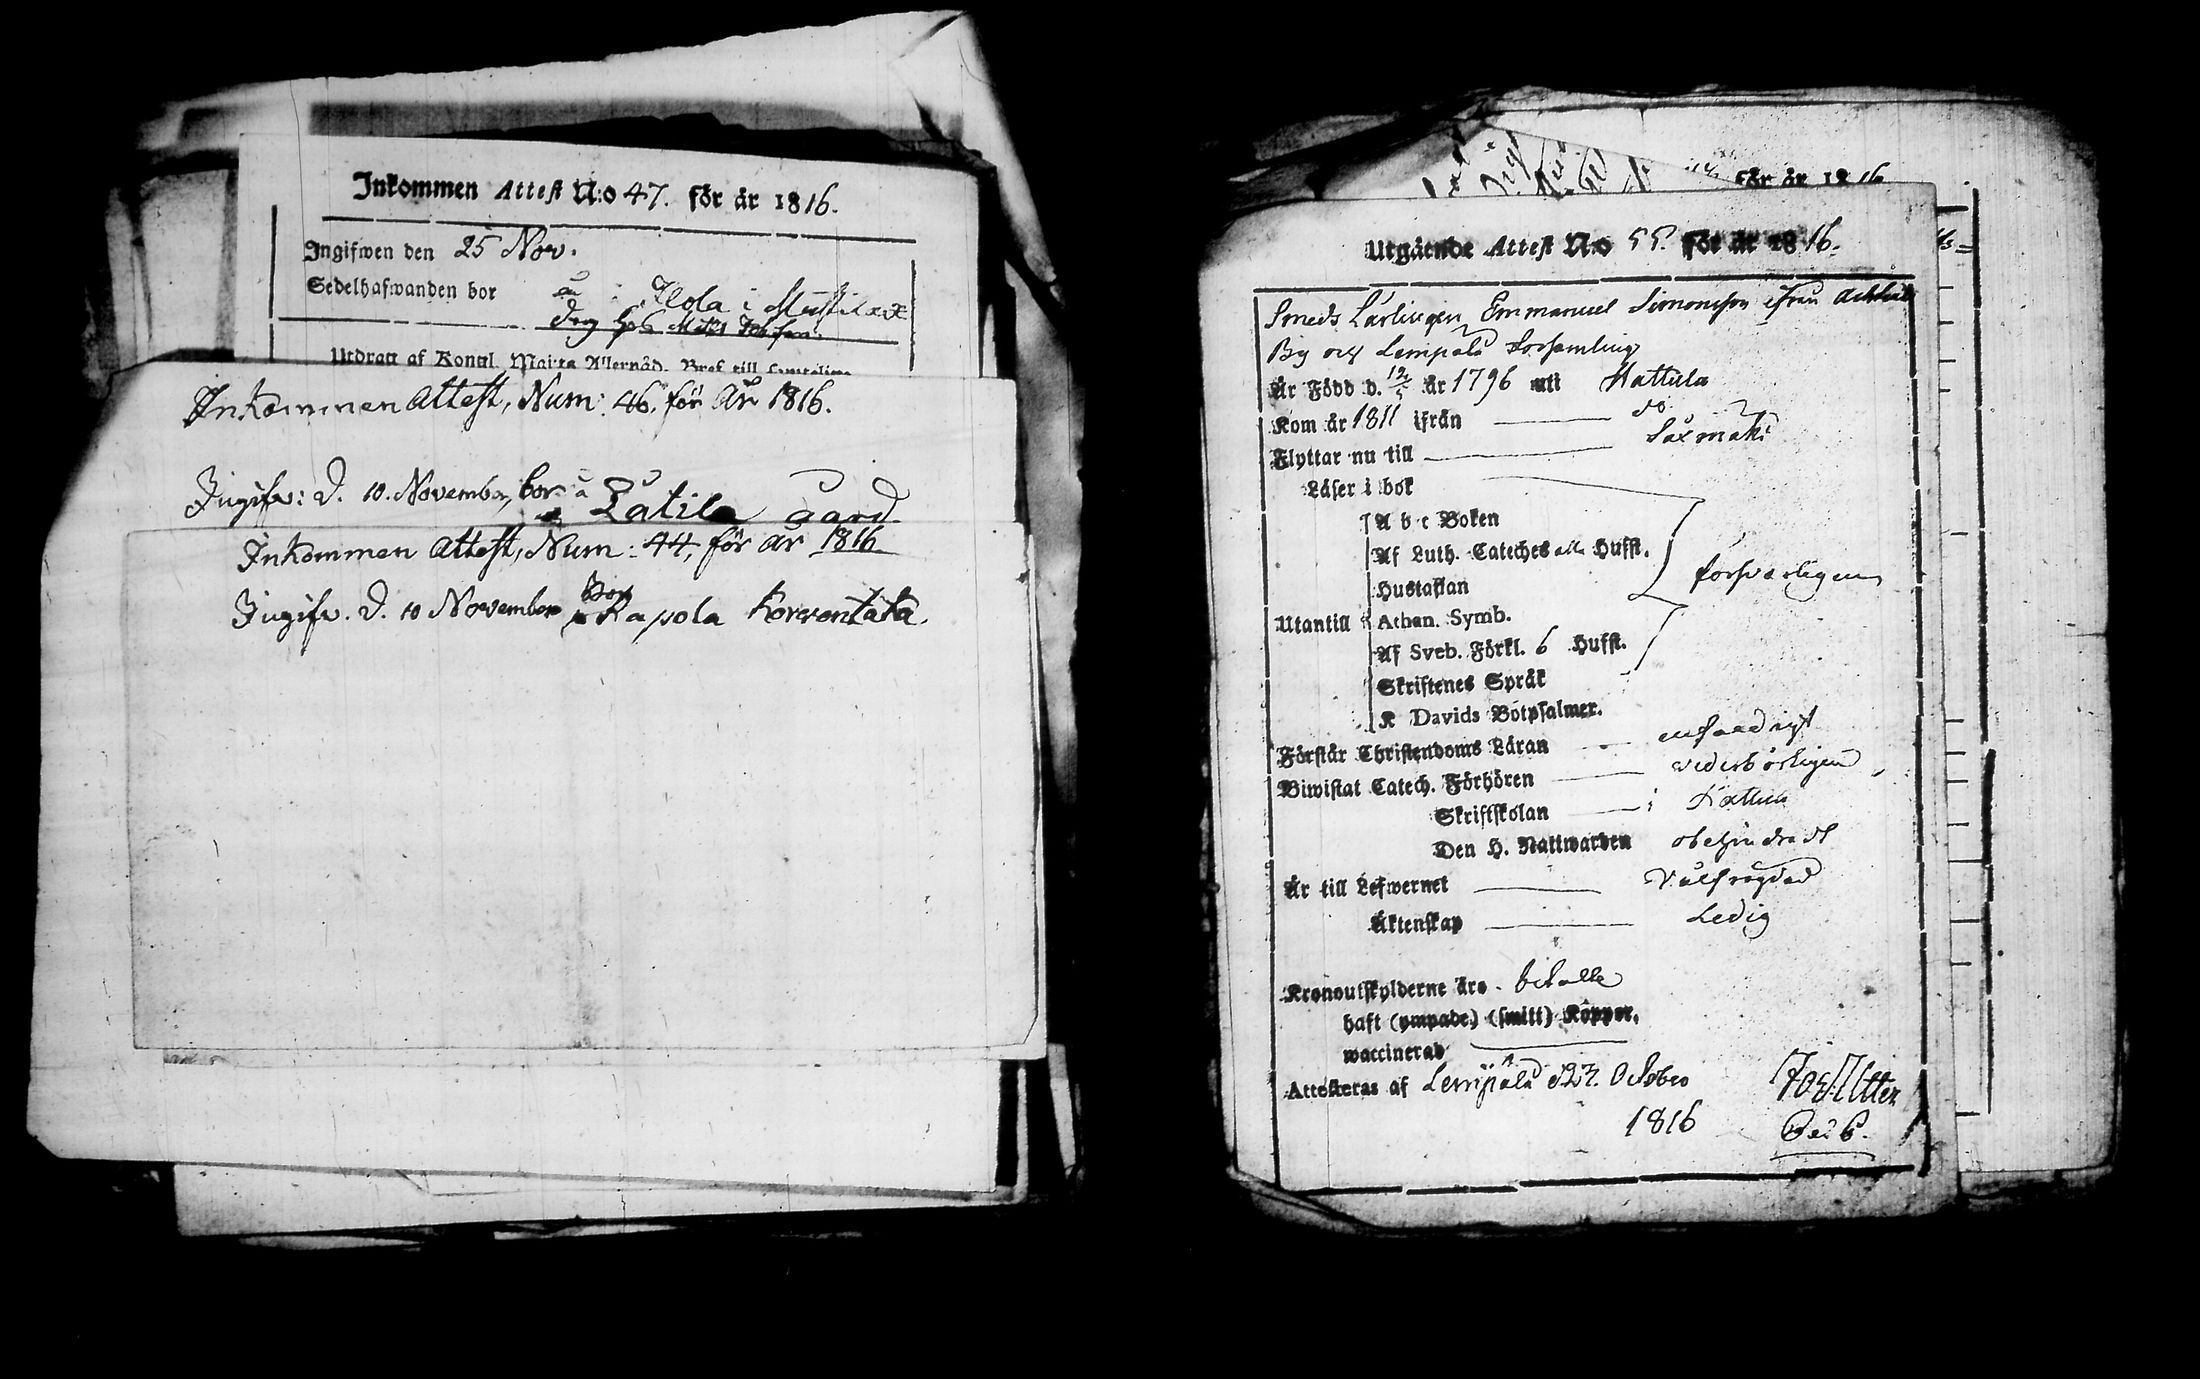 Inkommen Attest N:o 47. för år 1816.
Ingifwen den 25 Nov.
Sedelhafwanden bor å Ilola i
Utdratt af Kongl. Maj:ts Allernåd. Bref till samtelige
Inkommen Attest, Num: 46, för År 1816.
Ingifv: d. 10. November, bor å
Låtila gård.
Inkommen Attest, Num: 44, för år 1816.
Ingifv. d. 10 November Bor å Rapola Korventaka.
för år 1816
Utgående Attest N:o 55. för år 1816.
Smeds Lärlingen Emmanuel Simonsson ifrån
By och Lempälä Församling
Är Född d. 12/5 år 1796 uti Hattula
Kom år 1811 ifrån — do
Flyttar nu till — Säxmäki
Läser i bok
A b c Boken
Af Luth. Cateches alla Hufst.
Hustaflan
försvarligen
Utantill Athan. Symb.
Af Sveb. Förkl. 6 Hufst.
Skriftenes Språk
K Davids Botpsalmer.
Förstår Christendoms Läran — enfaldigt
Biwistat Catech. Förhören — vederbörligen
Skriftskolan — i Hattula
Den H. Nattwarden obehindradt
Är till Lefwernet — Välfrägdad
Äktenskap — Ledig
Kronoutskylderne äro betalte
haft (ympade) (smitt) Koppor.
waccinerad
Attesteras af Lempälä d. 27. October
1816